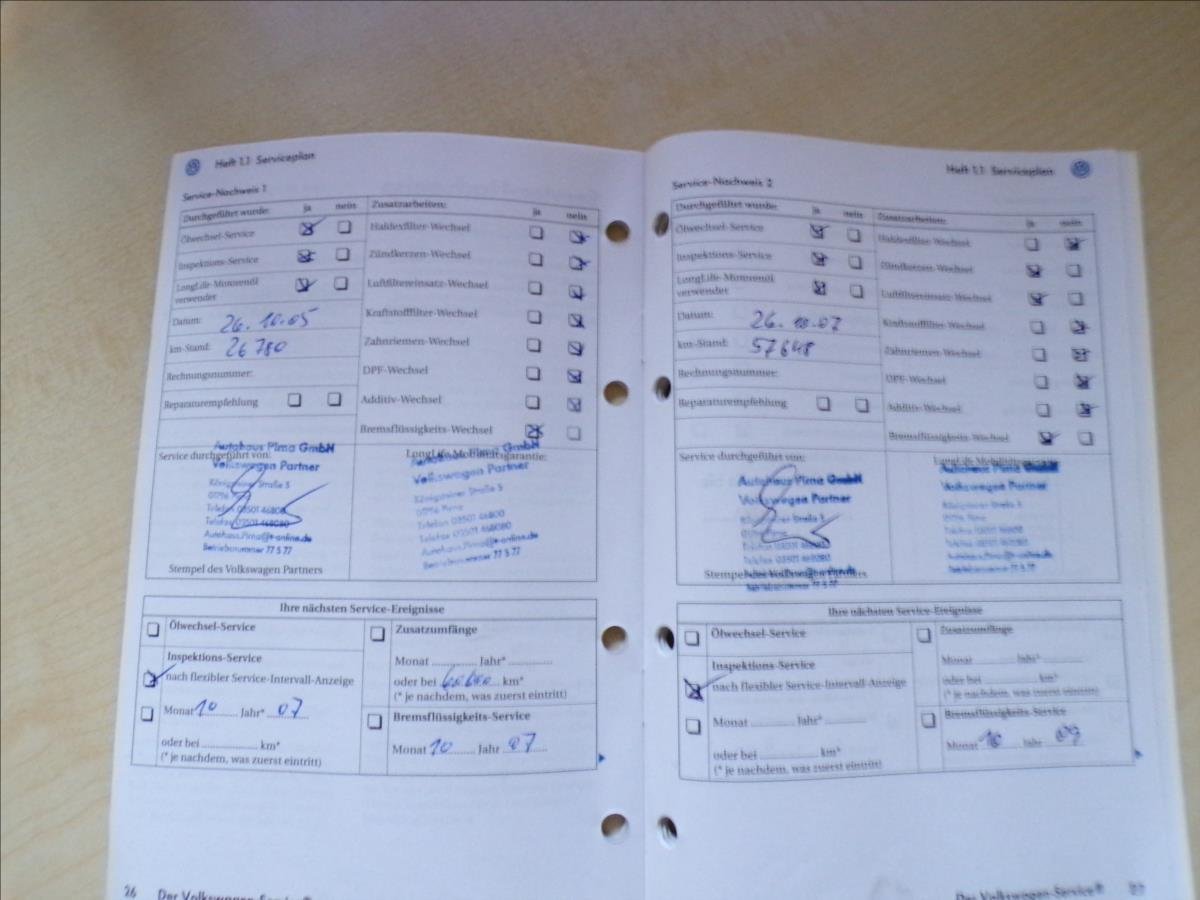 Heft 1.1 Serviceplan
Service-Nachweis 1
Durchgeführt wurde: ja nein
Ölwechsel-Service
Inspektions-Service
LongLife-Motorenöl
verwendet
Datum: 26.10.05
km-Stand: 26780
Rechnungsnummer:
Reparaturempfehlung
Zusatzarbeiten: ja nein
Haldexfilter-Wechsel
Zündkerzen-Wechsel
Luftfiltereinsatz-Wechsel
Kraftstofffilter-Wechsel
Zahnriemen-Wechsel
DPF-Wechsel
Additiv-Wechsel
Bremsflüssigkeits-Wechsel
Service durchgeführt von:
Autohaus Pirna GmbH
Volkswagen Partner
Königsteiner Straße 5
01796 Pirna
Telefon 03501 46800
Telefax 03501 468080
Autohaus.Pirna@t-online.de
Betriebsnummer 77 5 77
Stempel des Volkswagen Partners
LongLife Mobilitätsgarantie:
Volkswagen Partner
Königsteiner Straße 5
01796 Pirna
Telefon 03501 46800
Telefax 03501 468080
Autohaus.Pirna@t-online.de
Betriebsnummer 77 5 77
Ihre nächsten Service-Ereignisse
Ölwechsel-Service
Inspektions-Service
nach flexibler Service-Intervall-Anzeige
Monat 10 Jahr* 07
oder bei km*
(* je nachdem, was zuerst eintritt)
Zusatzumfänge
Monat Jahr*
oder bei 60000 km*
(* je nachdem, was zuerst eintritt)
Bremsflüssigkeits-Service
Monat 10 Jahr 07
26 Der Volkswagen-Service®
Heft 1.1 Serviceplan
Service-Nachweis 2
Durchgeführt wurde: ja nein
Ölwechsel-Service
Inspektions-Service
LongLife-Motorenöl
verwendet
Datum: 26.10.07
km-Stand: 57648
Rechnungsnummer:
Reparaturempfehlung
Zusatzarbeiten: ja nein
Haldexfilter-Wechsel
Zündkerzen-Wechsel
Luftfiltereinsatz-Wechsel
Kraftstofffilter-Wechsel
Zahnriemen-Wechsel
DPF-Wechsel
Additiv-Wechsel
Bremsflüssigkeits-Wechsel
Service durchgeführt von:
Autohaus Pirna GmbH
Volkswagen Partner
Königsteiner Straße 5
01796 Pirna
Telefon 03501 46800
Telefax 03501 468080
Stempel des Volkswagen Partners
Betriebsnummer 77 5 77
LongLife Mobilitätsgarantie:
Autohaus Pirna GmbH
Volkswagen Partner
Königsteiner Straße 5
01796 Pirna
Telefon 03501 46800
Telefax 03501 468080
Autohaus.Pirna@t-online.de
Betriebsnummer 77 5 77
Ihre nächsten Service-Ereignisse
Ölwechsel-Service
Inspektions-Service
nach flexibler Service-Intervall-Anzeige
Monat Jahr*
oder bei km*
(* je nachdem, was zuerst eintritt)
Zusatzumfänge
Monat Jahr*
oder bei km*
(* je nachdem, was zuerst eintritt)
Bremsflüssigkeits-Service
Monat 10 Jahr 09
Der Volkswagen-Service® 27